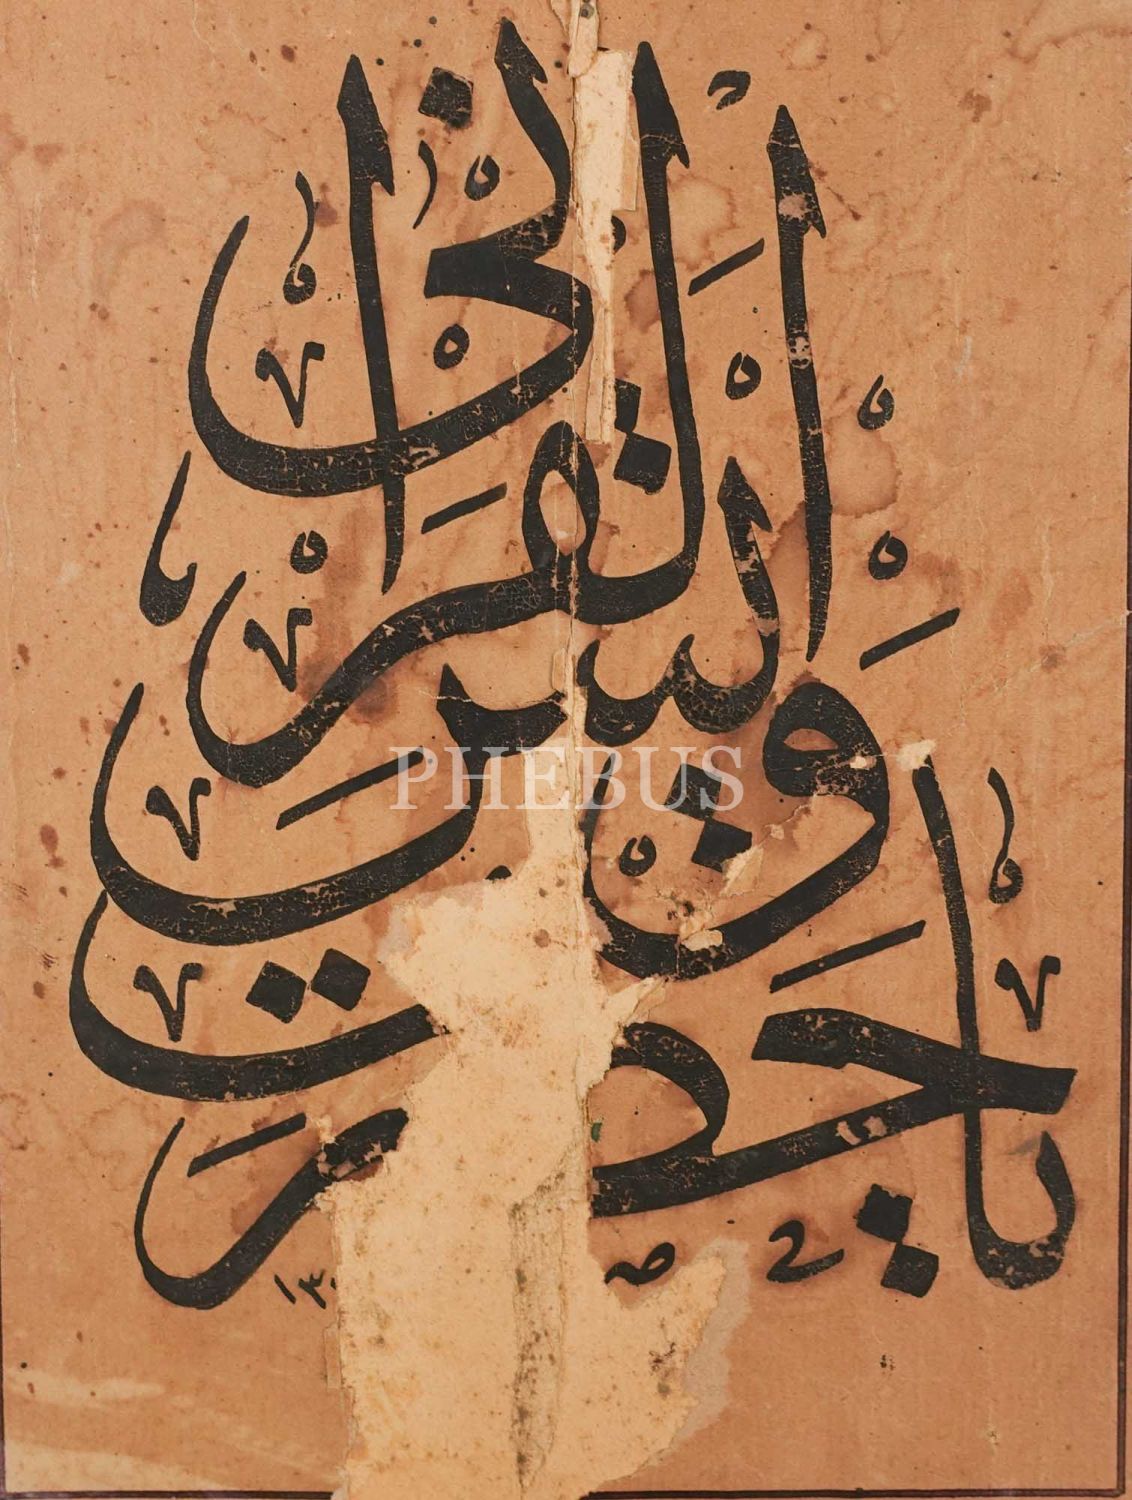 يا حضرت
ويس
القرانى
PHEBUS
١٣